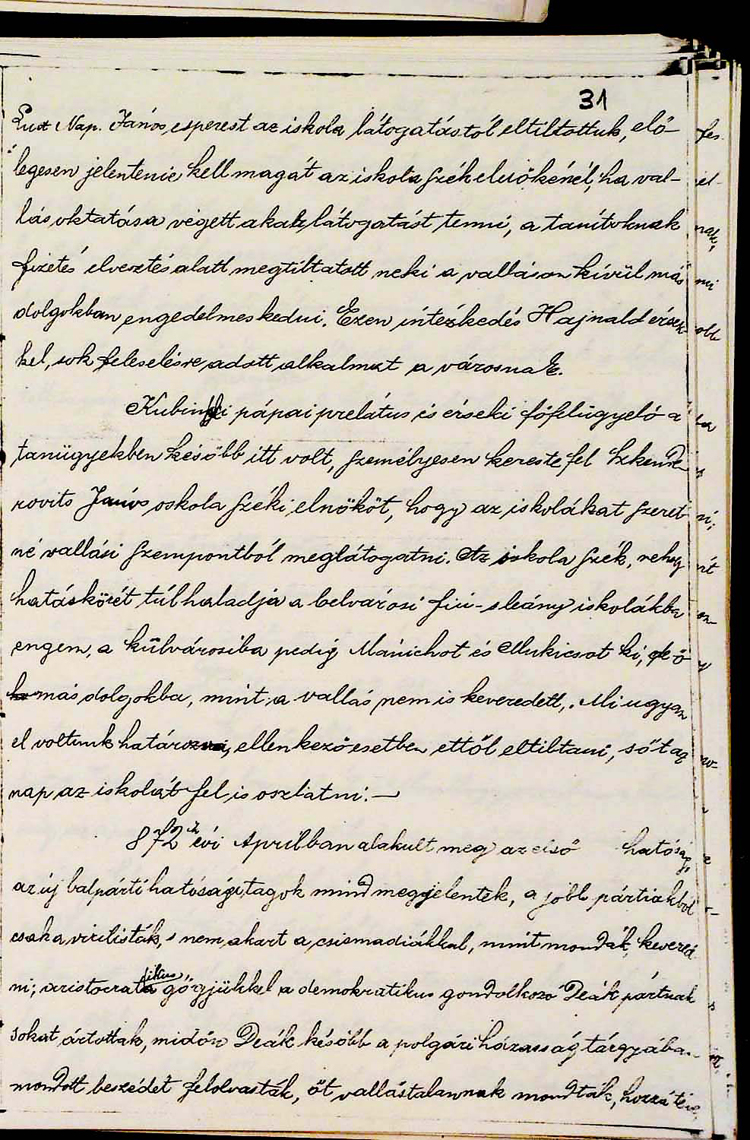 31
Nap. János, esperest az iskola látogatástól eltiltottuk, elő-
legesen jelentenie kell magát az iskola szék elnökénél, ha val-
lás oktatása végett akar látogatást tenni, a tanitoknak
fizetés elvesztés alatt megtiltatott neki a valláson kivül más
dolgokban engedelmeskedni. Ezen intézkedés Hajnald érsek-
kel, sok feleselésre adott alkalmat a városnak.
pápai prelátus és érseki főfelügyelő a
tanügyekben később itt volt, személyesen kereste fel
János oskola széki elnököt, hogy az iskolákat szeret
né vallási szempontból meglátogatni. Az iskola szék, nehogy
hatáskörét túlhaladja a belvárosi fiú-s leány iskolákba
engem, a külvárosiba pedig Mánichot és Mukicsot ki, de ő
más dolgokba, mint a vallás nem is keveredett. Mi ugyan
el voltunk határozva, ellenkező esetben ettől eltiltani, sőt az
nap az iskolát fel is oszlatni. —
872ik évi Aprilban alakult meg az első hatóság,
az új balpárti hatósági tagok mind megjelentek, a jobb pártiakból
csak a virilisták, s nem akart a csismadiákkal, mint mondák, kevered
ni; aristocratikus gőgjükkel a demokratikus gondolkozó Deák pártnak
sokat ártottak, midőn Deák később a polgári házasság tárgyában
mondott beszédét felolvasták, őt vallástalannak mondták, hozzá téve,